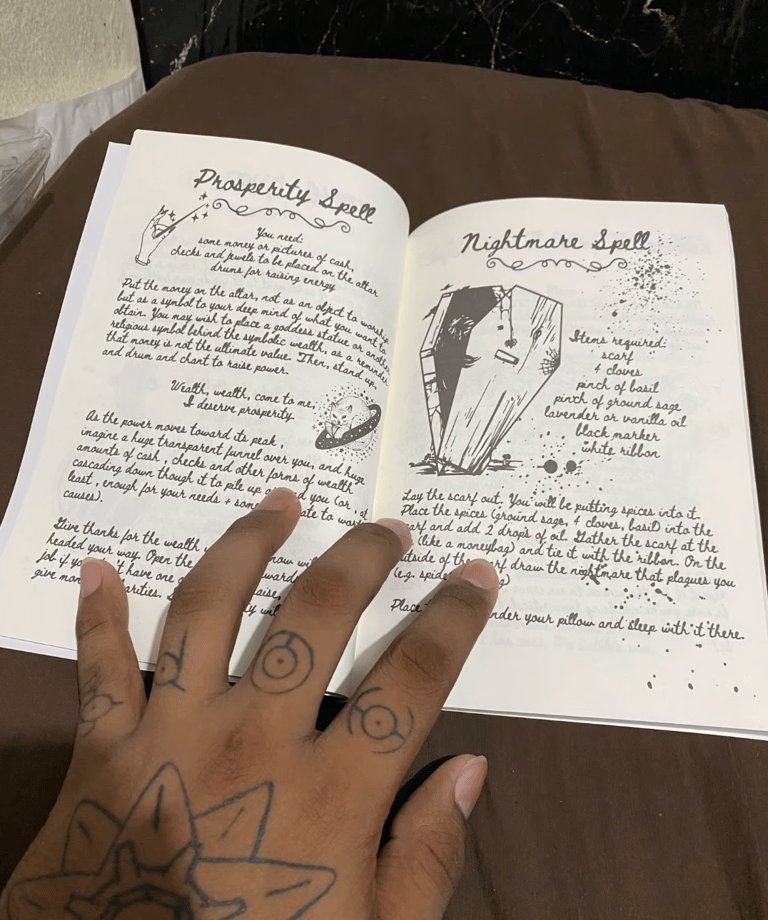 Prosperity Spell
You need:
some money or pictures of cash,
checks and jewels to be placed on the altar
drums for raising energy
Put the money on the altar, not as an object to worship
but as a symbol to your deep mind of what you want to
obtain. You may wish to place a goddess statue or another
religious symbol behind the symbolic wealth, as a reminder
that money is not the ultimate value. Then, stand up,
and drum and chant to raise power.
Wealth, wealth, come to me,
I deserve prosperity.
As the power moves toward its peak,
imagine a huge transparent funnel over you, and huge
amounts of cash, checks and other forms of wealth
cascading down though it to pile up you (or, at
least, enough for your needs + some to
causes).
Give thanks for the wealth
headed your way. Open the
job if have one
give
Nightmare Spell
Items required:
scarf
4 cloves
pinch of basil
pinch of ground sage
lavender or vanilla oil
black marker
white ribbon
Lay the scarf out. You will be putting spices into it.
Place the spices (ground sage, 4 cloves, basil) into the
and add 2 drops of oil. Gather the scarf at the
(like a moneybag) and tie it with the ribbon. On the
of the draw the nightmare that plagues you
(e.g.
Place your pillow and sleep with it there.